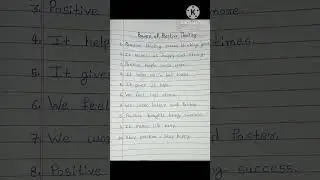 Power of Positive Thinking
1. Positive thinking means thinking good
2. It makes us happy and strong.
3. Positive people smile more.
4. It helps us in bad times.
5. It gives us hope.
6. We feel less stress.
7. We work better and faster.
8. Positive thoughts bring success.
9. It makes life easy.
10. Stay positive - Stay happy.
3. Positive
more.
4. It help
times.
5. It give
6. We feel
7. We wor
8. Positive
g success.